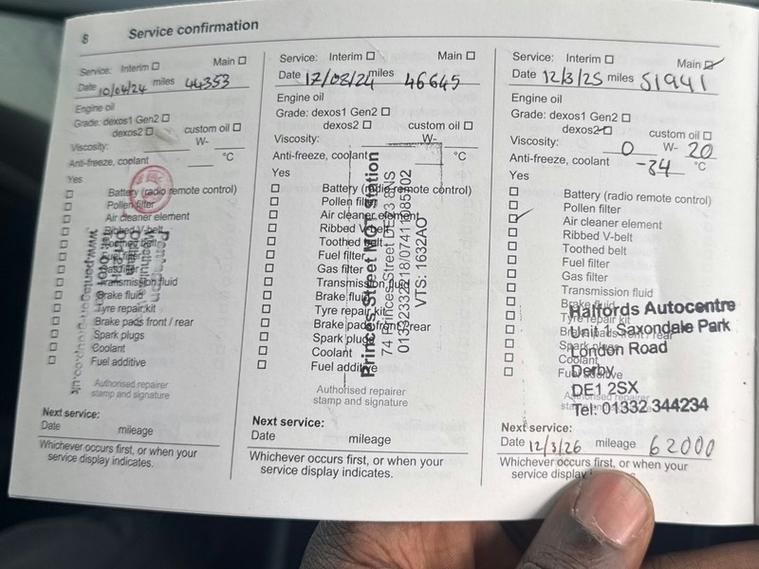 8 Service confirmation
Service: Interim ☐ Main ☐
Date 10/04/24 miles 44353
Engine oil
Grade: dexos1 Gen2 ☐
dexos2 ☐ custom oil ☐
Viscosity: W-
Anti-freeze, coolant °C
Yes
☐ Battery (radio remote control)
☐ Pollen filter
☐ Air cleaner element
☐ Ribbed V-belt
☐ Toothed belt
☐ Fuel filter
☐ Gas filter
☐ Transmission fluid
☐ Brake fluid
☐ Tyre repair kit
☐ Brake pads front / rear
☐ Spark plugs
☐ Coolant
☐ Fuel additive
Authorised repairer
stamp and signature
Next service:
Date mileage
Whichever occurs first, or when your
service display indicates.
Service: Interim ☐ Main ☐
Date 17/08/24 miles 46645
Engine oil
Grade: dexos1 Gen2 ☐
dexos2 ☐ custom oil ☐
Viscosity: W-
Anti-freeze, coolant °C
Yes
☐ Battery (radio remote control)
☐ Pollen filter
☐ Air cleaner element
☐ Ribbed V-belt
☐ Toothed belt
☐ Fuel filter
☐ Gas filter
☐ Transmission fluid
☐ Brake fluid
☐ Tyre repair kit
☐ Brake pads front / rear
☐ Spark plugs
☐ Coolant
☐ Fuel additive
Princes Street MOT Station
74 Princes Street DE23
VTS: 1632AO
Authorised repairer
stamp and signature
Next service:
Date mileage
Whichever occurs first, or when your
service display indicates.
Service: Interim ☐ Main ☑
Date 12/3/25 miles 51941
Engine oil
Grade: dexos1 Gen2 ☐
dexos2 ☑ custom oil ☐
Viscosity: 0 W- 20
Anti-freeze, coolant -34 °C
Yes
☐ Battery (radio remote control)
☐ Pollen filter
☑ Air cleaner element
☐ Ribbed V-belt
☐ Toothed belt
☐ Fuel filter
☐ Gas filter
☐ Transmission fluid
☐ Brake fluid
☐ Tyre repair kit
☐ Brake pads front / rear
☐ Spark plugs
☐ Coolant
☐ Fuel additive
Halfords Autocentre
Unit 1 Saxondale Park
London Road
Derby
DE1 2SX
Tel: 01332 344234
Next service:
Date 12/3/26 mileage 62000
Whichever occurs first, or when your
service display